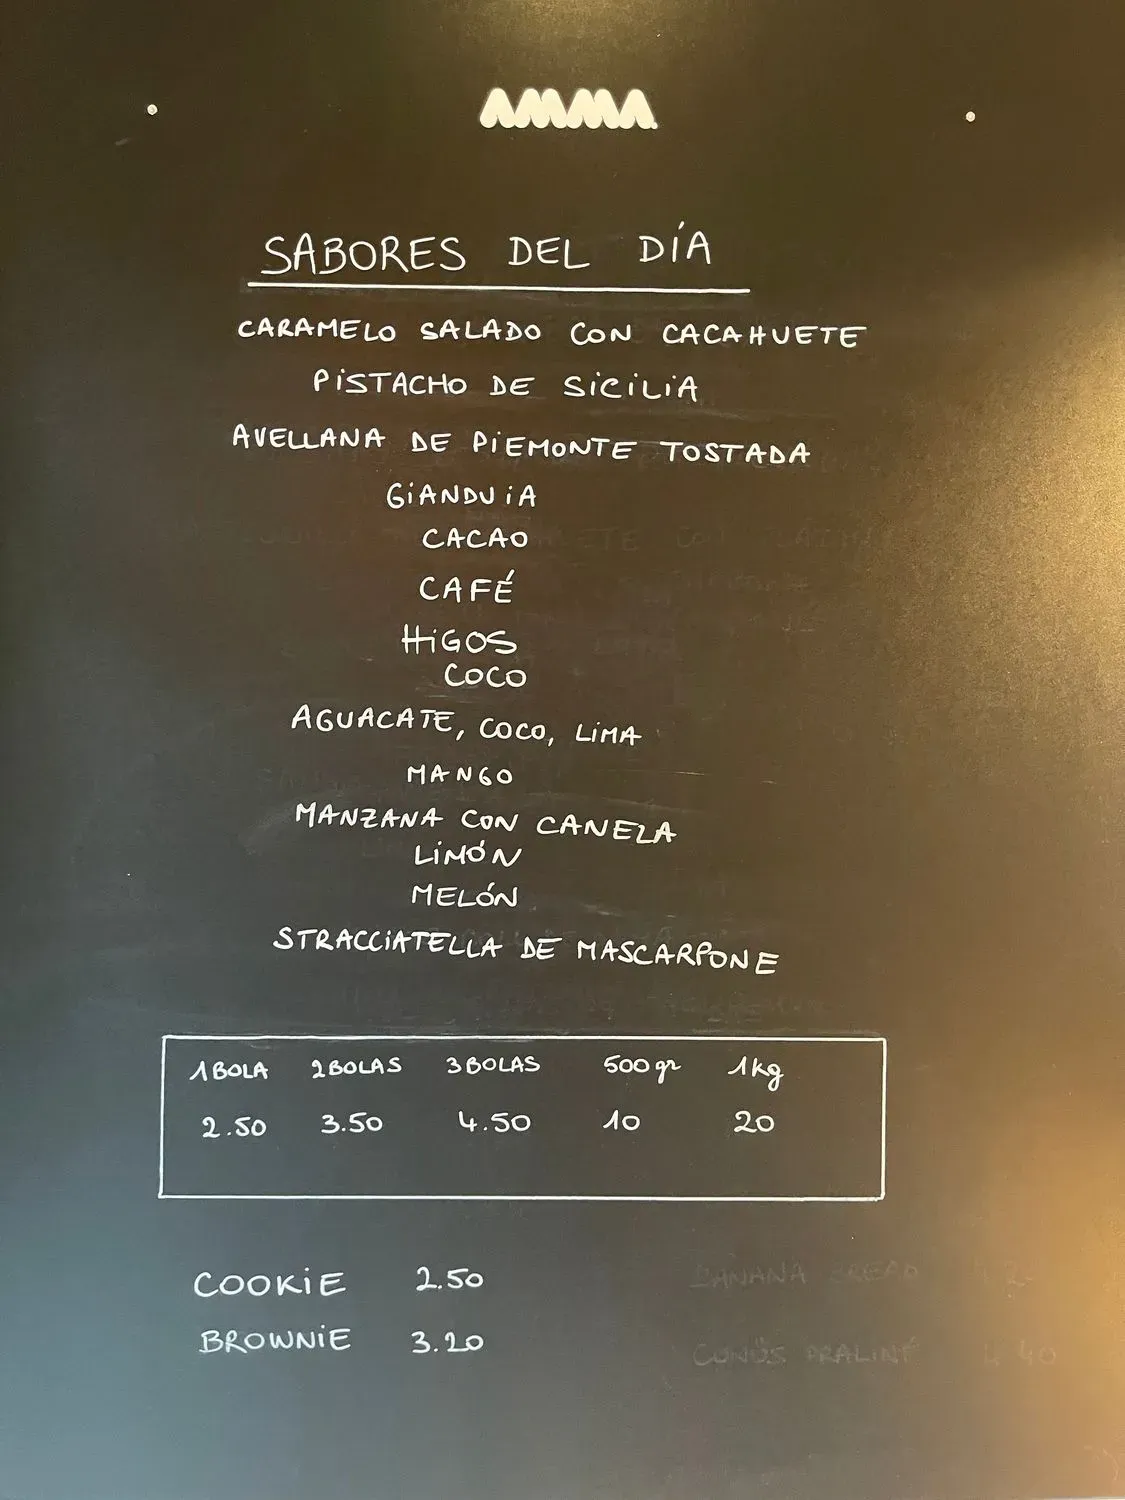 AMMA
SABORES DEL DÍA
CARAMELO SALADO CON CACAHUETE
PISTACHO DE SICILIA
AVELLANA DE PIEMONTE TOSTADA
GIANDUIA
CACAO
CAFÉ
HIGOS
COCO
AGUACATE, COCO, LIMA
MANGO
MANZANA CON CANELA
LIMÓN
MELÓN
STRACCIATELLA DE MASCARPONE
1 BOLA 2 BOLAS 3 BOLAS 500 gr 1 kg
2.50 3.50 4.50 10 20
COOKIE 2.50 BANANA BREAD
BROWNIE 3.20 CONOS PRALINÉ 4.40